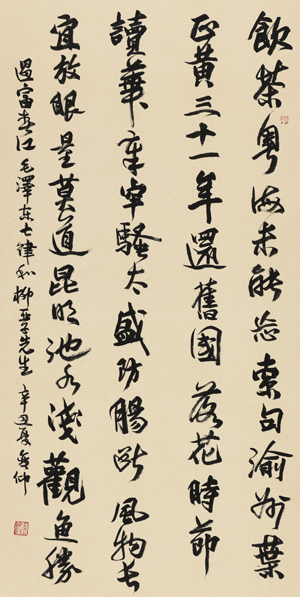 飲茶粵海未能忘索句渝州葉
正黃三十一年還舊國落花時節
讀華章牢騷太盛防腸断風物长
宜放眼量莫道昆明池水淺觀魚勝
過富春江 毛澤东七律和柳亞子先生 辛丑夏